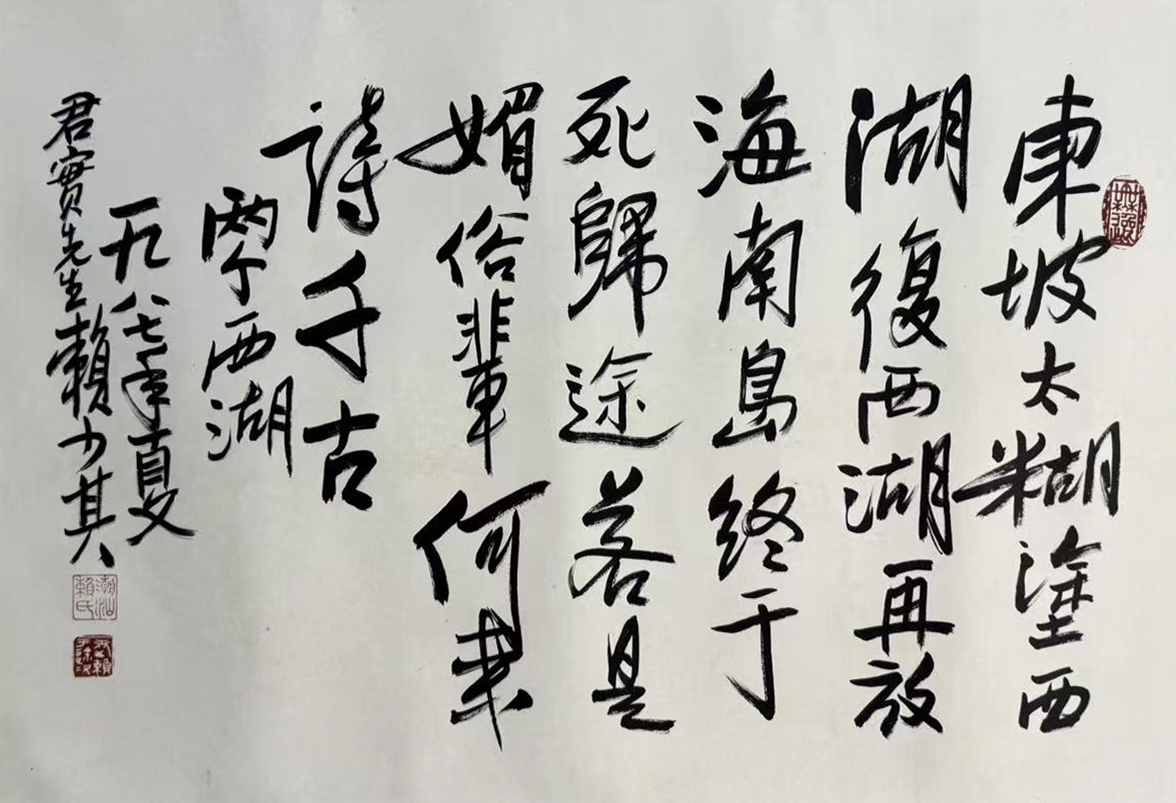 東坡太糊塗西
湖復西湖再放
海南島終于
死歸途若是
媚俗輩何来
詩千古
兩个西湖
一九八七年夏
君實先生賴少其
潮汕賴氏